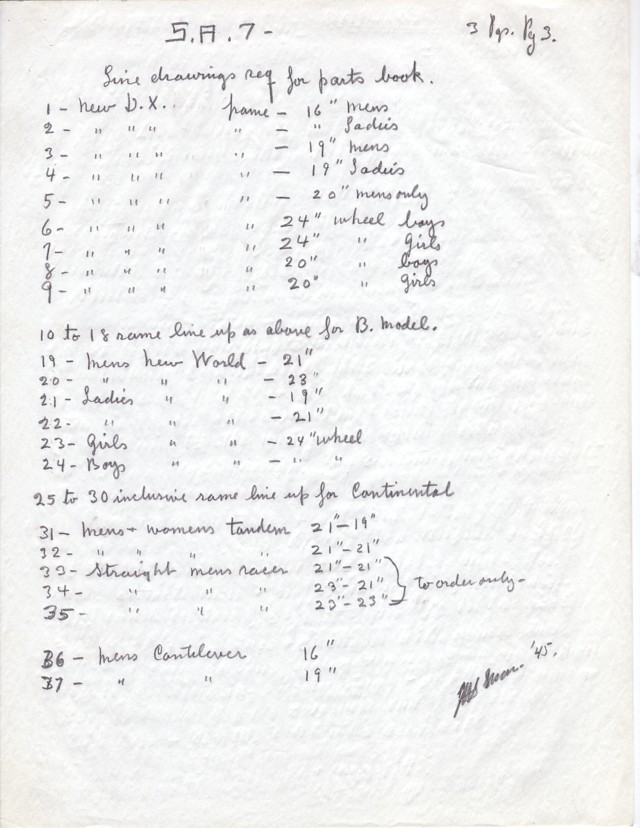 S.A. 7 -
3 Pgs. Pg 3.
Line drawings req for parts book.
1 - New D.X. frame - 16" mens
2 - " " " " - " Ladies
3 - " " " " - 19" mens
4 - " " " " - 19" Ladies
5 - " " " " - 20" mens only
6 - " " " " 24" wheel boys
7 - " " " " 24" " Girls
8 - " " " " 20" " boys
9 - " " " " 20" " Girls
10 to 18 same line up as above for B. Model.
19 - Mens New World - 21"
20 - " " " - 23"
21 - Ladies " " - 19"
22 - " " " - 21"
23 - Girls " " - 24" wheel
24 - Boys " " - " "
25 to 30 inclusive same line up for Continental
31 - Mens + womens tandem 21" - 19"
32 - " " " " 21" - 21"
33 - Straight mens racer 21" - 21"
34 - " " " 23" - 21" to order only -
35 - " " " 23" - 23"
36 - Mens Cantilever 16"
37 - " " 19"
'45.